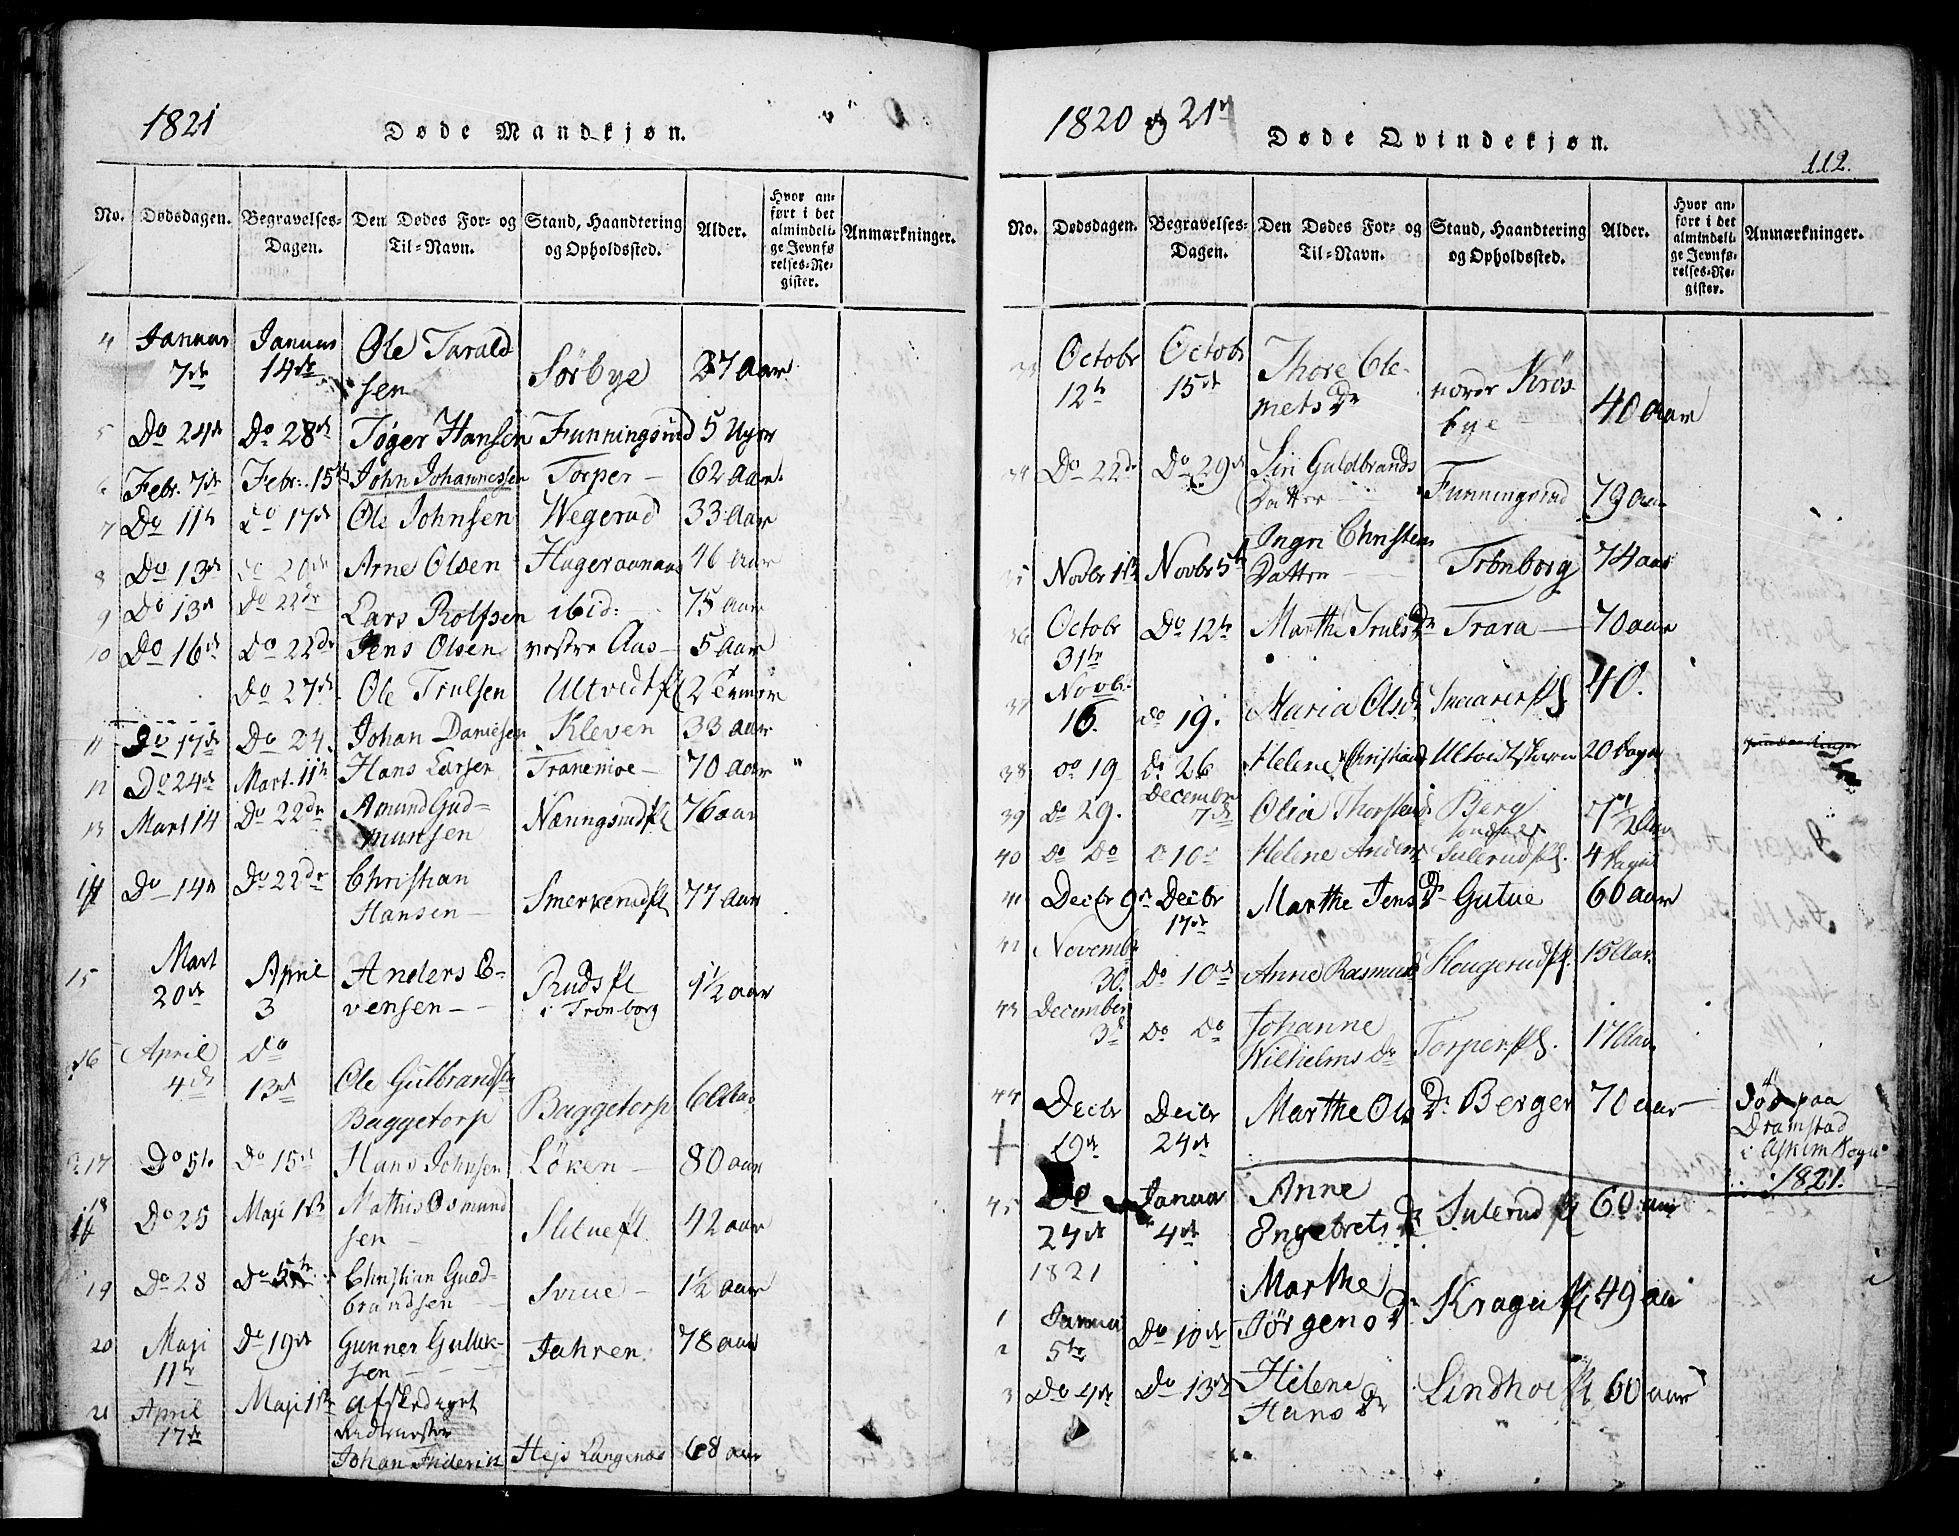 1821
Døde Mandkjøn.
No. Dødsdagen. Begravelses-Dagen. Den Dødes For- og Til-Navn. Stand, Haandtering og Opholdssted. Alder. Hvor anført i det almindelige Jevnførelses-Register. Anmærkninger.
4 Januar 7de Januar 14de Ole Taraldsen Sörbye 37 Aar
5 Do 24de Do 28de Toger Hansen Funningsrud 5 Uger
6 Febr. 7de Febr. 15de John Johannessen Torper 62 Aar
7 Do 11te Do 17de Ole Johnsen Wegerud 33 Aar
8 Do 13de Do 20de Arne Olsen 46 Aar
9 Do 13de Do 22de Lars Rolfsen ibid: 75 aar
10 Do 16de Do 22de Jens Olsen vestre Aas 5 Aar
Do 27de Ole Trulsen Ultvedt pl
11 Do 17de Do 24. Johan Danielsen Kleven 33 aar
12 Do 24de Mart. 11te Hans Larsen Tranemoe 70 Aar
13 Mart 14 Do 22de Amund Gudmunsen Næningsrud pl 76 aar
14 Do 14de Do 22de Christian Hansen Smerkerud pl 77 aar
15 Mart 20de April 3 Anders Evensen Ruds pl i Tronborg 1½ aar
16 April 4de Do 13de Ole Gulbrandsen Baggetorp Baggetorp 60 Aar
17 Do 5te Do 15de Hans Johnsen Löken 80 aar
18 Do 25 Maji 1ste Mathis Osmundsen Slitue pl. 42 aar
19 Do 28 Do 5te Christian Guldbrandsen Svine 1½ aar
20 Maji 11te Do 19de Gunner Guluksen Jahren 78 aar
21 April 17de Maji 1ste afskediget Ridtmester Johan Friderik Hejs Langenæs 68 aar
1820 og 21de
Døde Qvindekjøn.
112.
No. Dødsdagen. Begravelses-Dagen. Den Dødes For- og Til-Navn. Stand, Haandtering og Opholdssted. Alder. Hvor anført i det almindelige Jevnførelses-Register. Anmærkninger.
33 Octobr 12te Octobr 15de Thore Clemets Dr nordr Krösbye 40 Aar
34 Do 22de Do 29de Siri Guldbrands Datter Funningsrud 79 Aar
35 Novbr 1ste Novbr 5te Ingri Christens Datter Trönborg 74 aar
36 Octobr 31te Do 12te Marthe Truls Dr Trara 70 aar
37 Novbr. 16. do 19. Maria Olsd Snaarer pl. 40.
38 do 19 Do 26 Helene Christians 20 Dage
39 Do 29. Decembr 7de Olia Thorstens Berg 7½ Aar
40 Do Do Do 10de Helene Anders Sulerud pl. 4 Dage
41 Decbr 9de Decbr 17de Marthe Jens Dr Gutue 60 aar
42 Novembr 30. Do 10de Anne Rasmusd Hougerud pl. 15 Aar.
43 December 3de Do Do Johanne Wilhelms Dr Torper pl. 17 Aar.
44 Decbr 19de Decbr 24de Marthe Ols Dr Berger 70 aar Död paa Dramstad i Askim Sogn
1821.
45 Do 24de Januar 4de Anne Engebrets Dr Sulerud pl 60 aar
1821
1 Januar 5te Do 10de Marthe Jörgens Dr Krager pl 49 aar
2
3 Do 4de Do 13de Helene Hans Dr Lindhoe pl 60 aar